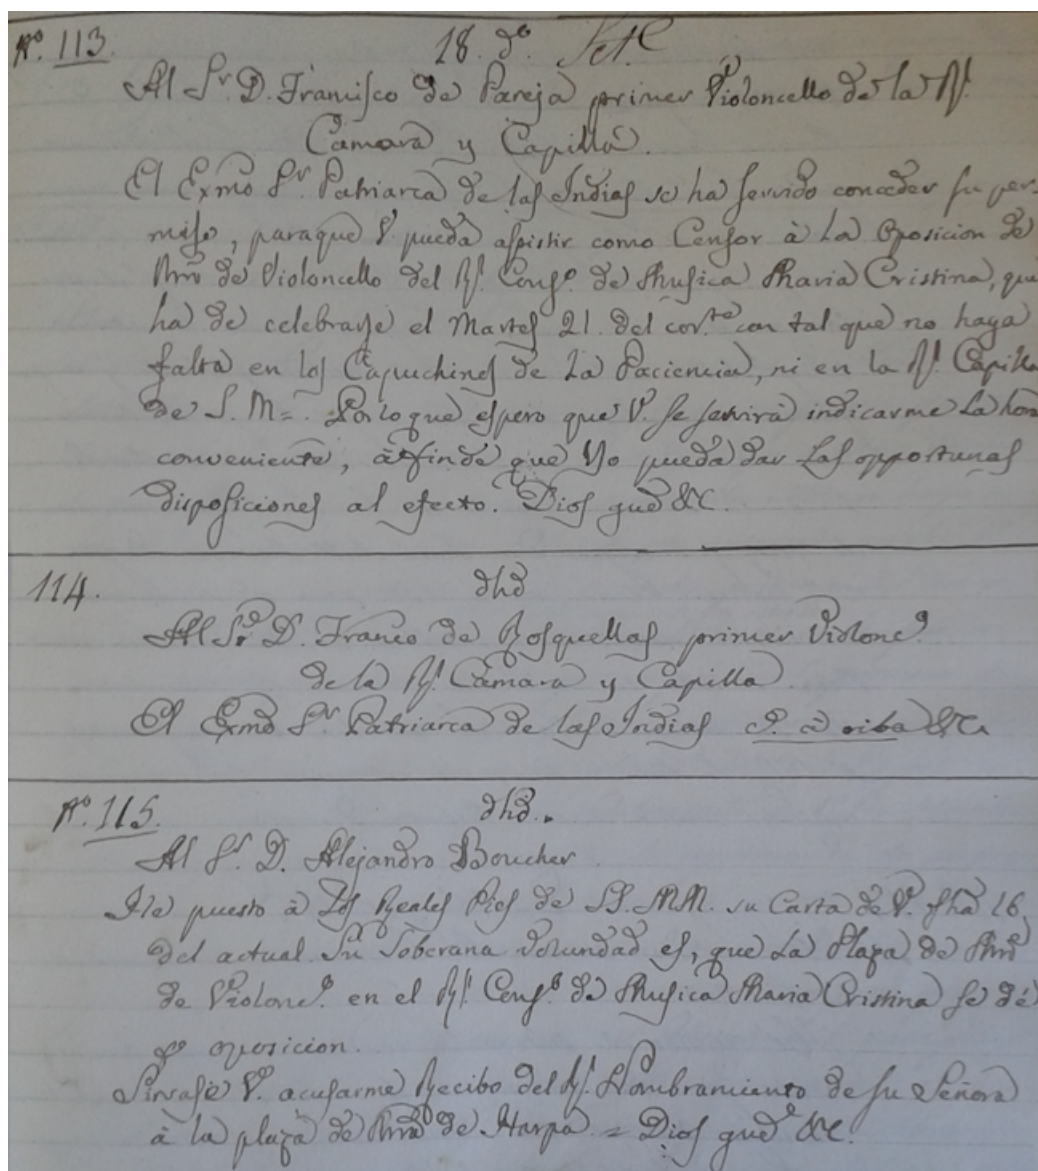 Nº. 113. 18. dº. Set.e
Al Sr. D. Francisco de Pareja primer Violoncello de la Rl.
Camara y Capilla.
El Exmo Sr. Patriarca de las Indias se ha servido conceder su per-
miso, paraque V. pueda assistir como Censor à La Oposicion de
Mro de Violoncello del Rl. Consº. de Musica Maria Cristina, que
ha de celebrarse el Martes 21. del cor.te con tal que no haga
falta en los Capuchinos de La Paciencia, ni en la Rl. Capilla
de S. M=. Porloque espero que V. se servirà indicarme La hora
conveniente, àfinde que Yo pueda dar Las opportunas
disposiciones al efecto. Dios gue &c.
114. dhô
Al Sr. D. Franco de Rosquellas primer Violonc.º
de la Rl. Camara y Capilla
El Exmo Sr. Patriarca de las Indias à riba &c.
Nº. 115. dhô.
Al Sr. D. Alejandro Boucher
He puesto à Los Reales Pies de SS. MM. su Carta de V. fha 16,
del actual. Su Soberana Volundad es, que La Plaza de Mro
de Violonc.º en el Rl. Consº de Musica Maria Cristina se dé
oposicion.
Sirvase V. acusarme Recibo del Rl. Nombramiento de su Señora
à la plaza de Mra de Harpa = Dios gue &c.